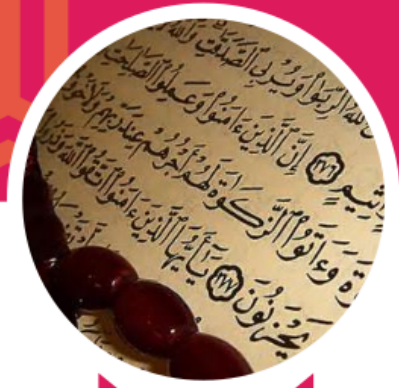 ٱللَّهُ ٱلرِّبَوٰا۟ وَيُرْبِى ٱلصَّدَقَٰتِ وَٱللَّهُ
أَثِيمٍ ٢٧٦ إِنَّ ٱلَّذِينَ ءَامَنُوا۟ وَعَمِلُوا۟ ٱلصَّٰلِحَٰتِ
وَءَاتَوُا۟ ٱلزَّكَوٰةَ لَهُمْ أَجْرُهُمْ عِندَ رَبِّهِمْ وَلَا خَوْفٌ
يَحْزَنُونَ ٢٧٧ يَٰٓأَيُّهَا ٱلَّذِينَ ءَامَنُوا۟ ٱتَّقُوا۟ ٱللَّهَ وَذَرُوا۟